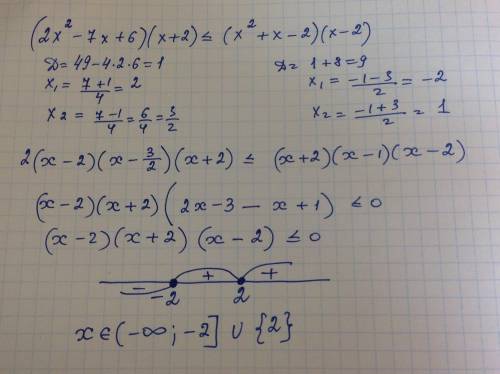 (2x² - 7x + 6)(x+2) ≤ (x² + x - 2)(x - 2)
D = 49 - 4·2·6 = 1
x₁ = (7+1)/4 = 2
x₂ = (7-1)/4 = 6/4 = 3/2
D = 1 + 8 = 9
x₁ = (-1-3)/2 = -2
x₂ = (-1+3)/2 = 1
2(x-2)(x - 3/2)(x+2) ≤ (x+2)(x-1)(x-2)
(x-2)(x+2)(2x-3 - x+1) ≤ 0
(x-2)(x+2)(x-2) ≤ 0
- + +
-2 2
x ∈ (-∞; -2] ∪ {2}